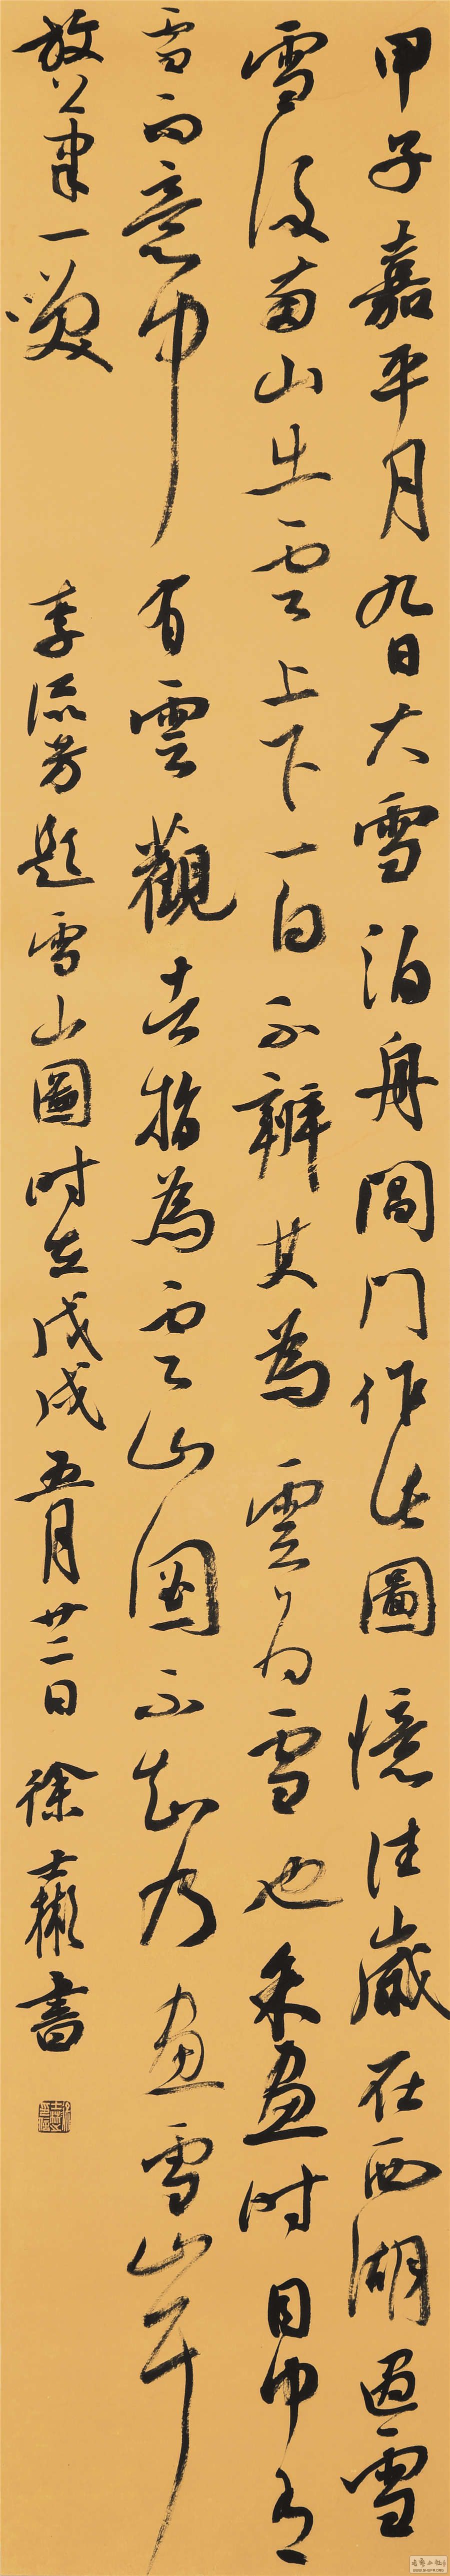 甲子嘉平月九日大雪泊舟閶門作此圖憶往歲在西湖遇雪
雪後兩山出雲上下一白不辨其為雲為雪也余畫時目中有
雪而意中有雲觀者指為雲山圖不知乃畫雪山耳
放筆一笑 李流芳題雪山圖時在戊戌五月廿二日 徐士彬書